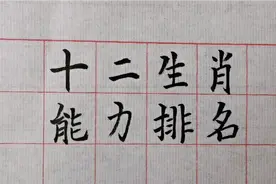 十二生肖
能力排名